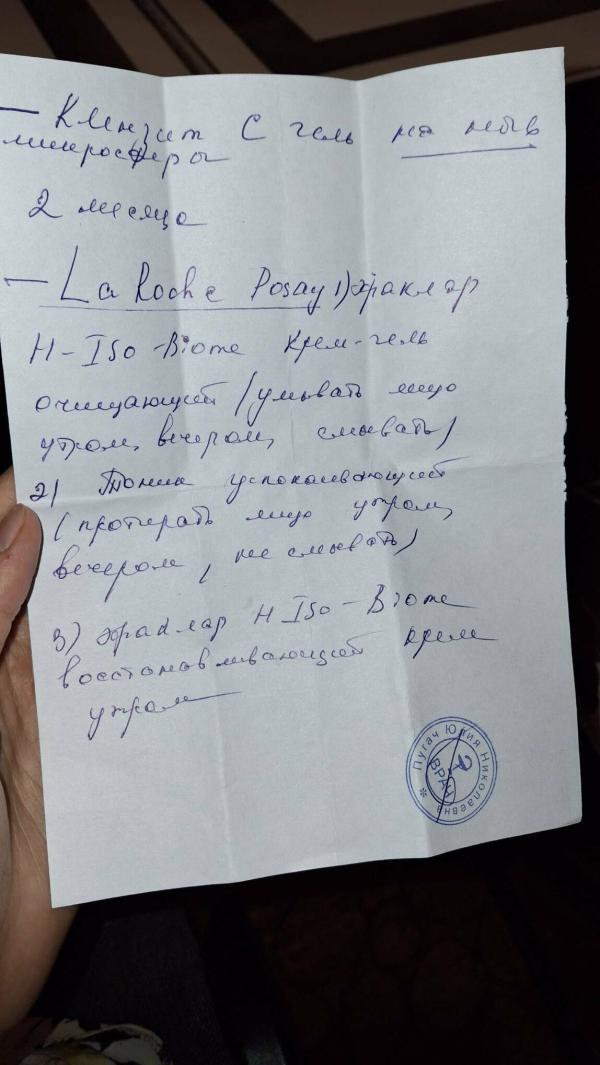 — Клензит С гель на ночь
микросферы
2 месяца
— La Roche Posay 1) эфаклар
H-Iso-Biome крем-гель
очищающий (умывать лицо
утром, вечером, смывать)
2) Тоник успокаивающий
(протирать лицо утром,
вечером, не смывать)
3) эфаклар H Iso-Biome
восстанавливающий крем
утром
Пугач Юлия Николаевна
ВРАЧ